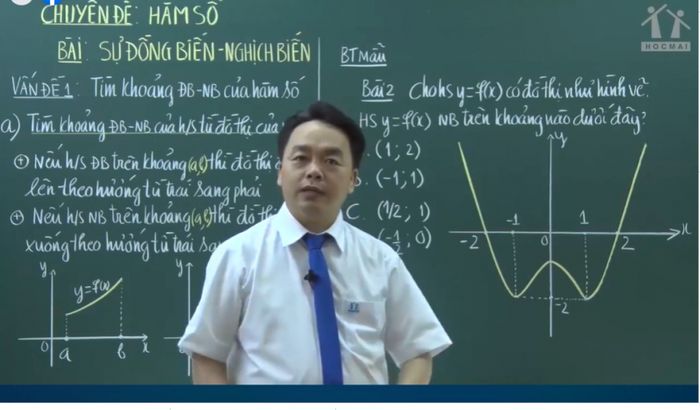 CHUYÊN ĐỀ: HÀM SỐ
BÀI: SỰ ĐỒNG BIẾN - NGHỊCH BIẾN
VẤN ĐỀ 1: Tìm khoảng ĐB-NB của hàm số
a) Tìm khoảng ĐB-NB của h/s từ đồ thị của
+ Nếu h/s ĐB trên khoảng (a,b) thì đồ thị
lên theo hướng từ trái sang phải
+ Nếu h/s NB trên khoảng (a,b) thì đồ thị
xuống theo hướng từ trái sang
y
y=f(x)
0 a b x
y
HOCMAI
BT Mẫu
Bài 2 Cho hs y=f(x) có đồ thị như hình vẽ.
HS y=f(x) NB trên khoảng nào dưới đây?
(1; 2)
(-1; 1)
C. (1/2; 1)
(-1/2; 0)
y
-1 1
-2 0 2 x
-2